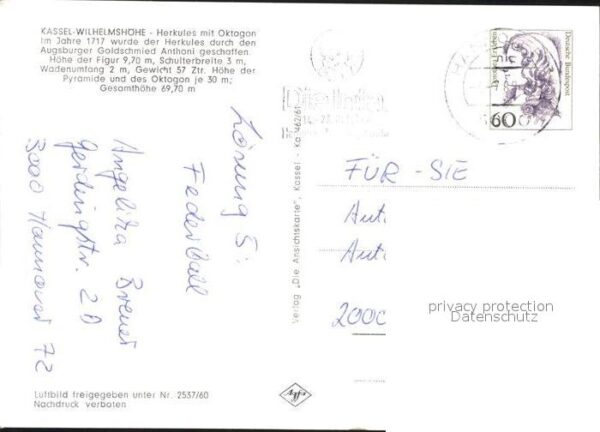 KASSEL-WILHELMSHÖHE - Herkules mit Oktogon
Im Jahre 1717 wurde der Herkules durch den
Augsburger Goldschmied Anthoni geschaffen.
Höhe der Figur 9,70 m, Schulterbreite 3 m,
Wadenumfang 2 m, Gewicht 57 Ztr. Höhe der
Pyramide und des Oktogon je 30 m;
Gesamthöhe 69,70 m
Lösung 5:
Federball
Angelika Breuer
2D
3000 Hannover 72
Luftbild freigegeben unter Nr. 2537/60
Nachdruck verboten
Verlag „Die Ansichtskarte", Kassel - Ka 462/61
Deutsche Bundespost
60
FÜR - SIE
Ant.
Ant.
2000
privacy protection
Datenschutz
Agfa